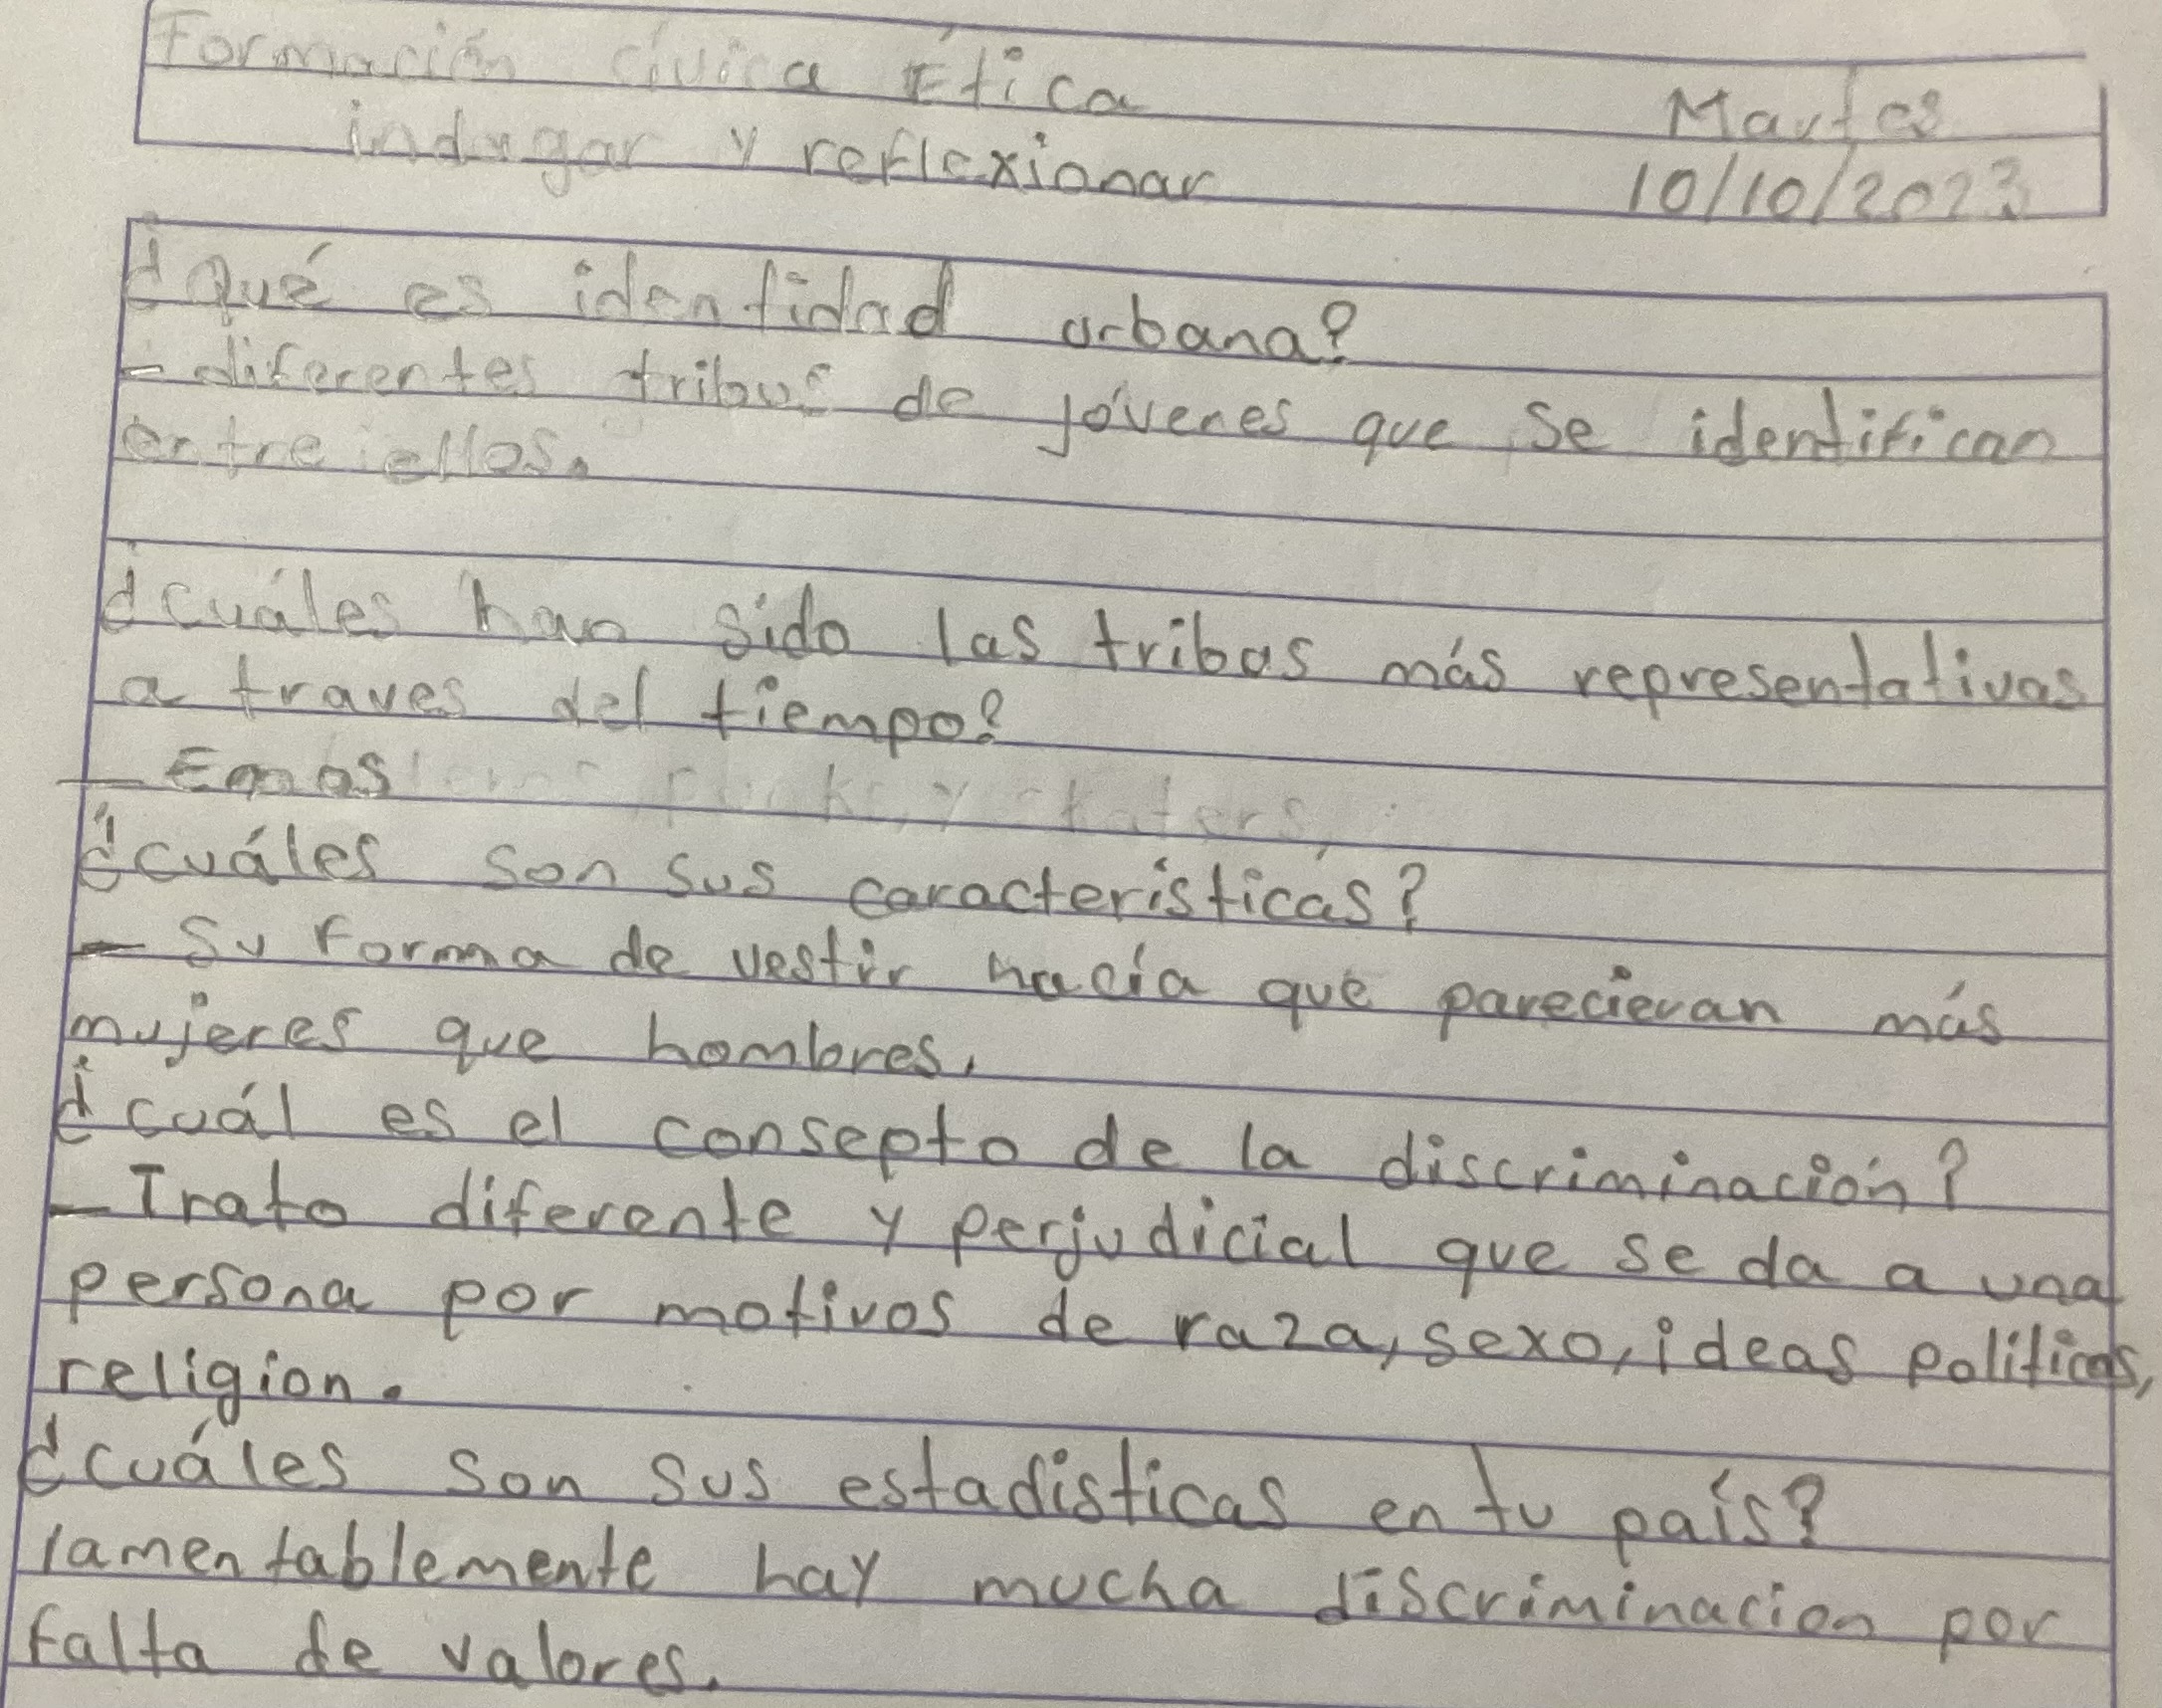 Formación cívica Ética
Martes
indagar y reflexionar
10/10/2023
¿Qué es identidad urbana?
- diferentes tribus de jóvenes que se identifican
entre ellos.
¿cuáles han sido las tribus más representativas
a traves del tiempo?
- Emos
¿cuáles son sus características?
- Su forma de vestir hacía que parecieran más
mujeres que hombres.
¿cuál es el consepto de la discriminación?
- Trato diferente y perjudicial que se da a una
persona por motivos de raza, sexo, ideas politicas,
religion.
¿cuáles son sus estadisticas en tu país?
lamentablemente hay mucha discriminacion por
falta de valores.